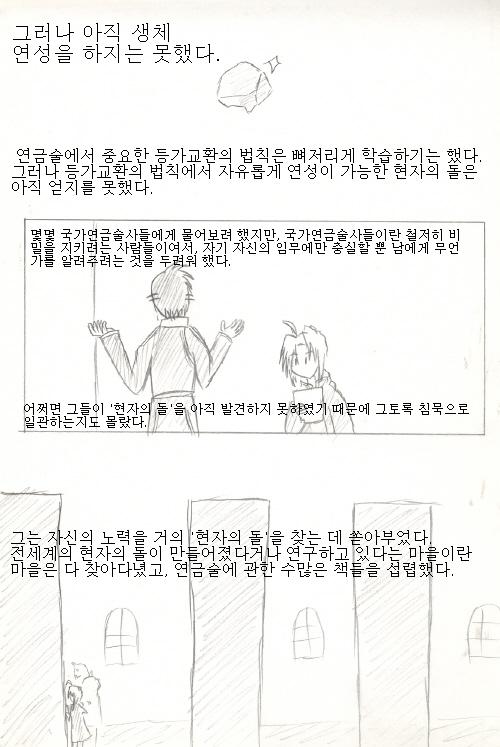 그러나 아직 생체
연성을 하지는 못했다.
연금술에서 중요한 등가교환의 법칙은 뼈저리게 학습하기는 했다.
그러나 등가교환의 법칙에서 자유롭게 연성이 가능한 현자의 돌은
아직 얻지를 못했다.
몇몇 국가연금술사들에게 물어보려 했지만, 국가연금술사들이란 철저히 비
밀을 지키려는 사람들이여서, 자기 자신의 임무에만 충실할 뿐 남에게 무언
가를 알려주려는 것을 두려워 했다.
어쩌면 그들이 '현자의 돌'을 아직 발견하지 못하였기 때문에 그토록 침묵으로
일관하는지도 몰랐다.
그는 자신의 노력을 거의 '현자의 돌'을 찾는 데 쏟아부었다.
전세계의 현자의 돌이 만들어졌다거나 연구하고 있다는 마을이란
마을은 다 찾아다녔고, 연금술에 관한 수많은 책들을 섭렵했다.